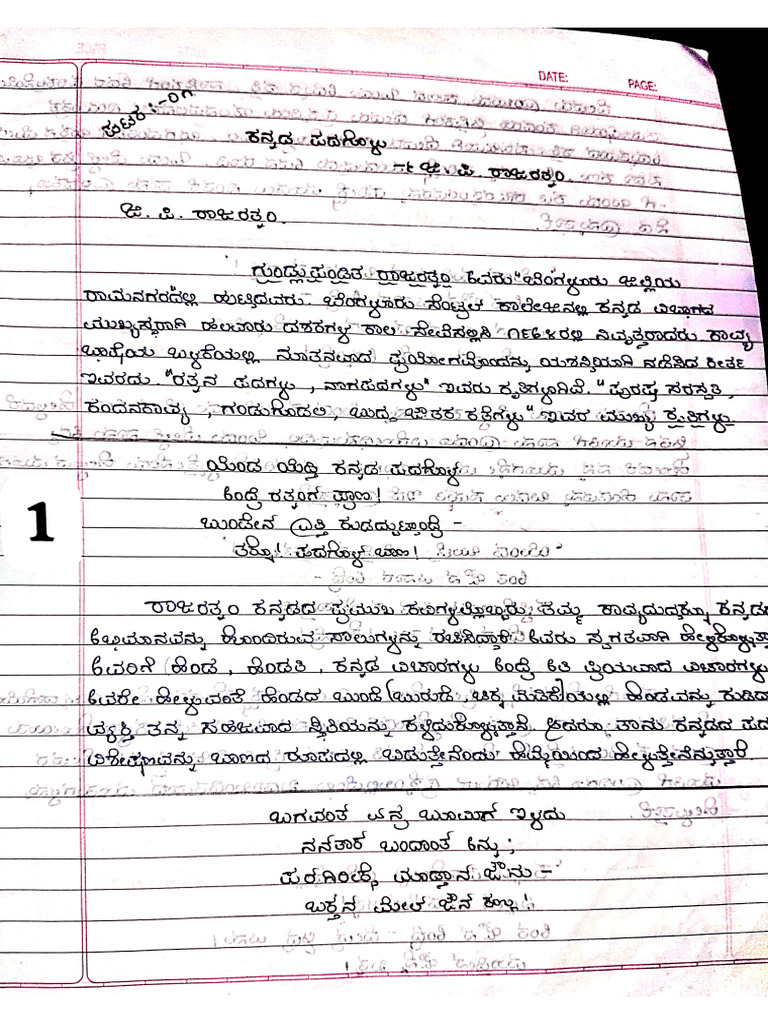 DATE: PAGE:
ಪುಟ:-೦೧
ಕನ್ನಡ ಪದಗೊಳು
- ಜಿ. ಪಿ. ರಾಜರತ್ನಂ.
ಜಿ. ಪಿ. ರಾಜರತ್ನಂ.
ಗುಂಡ್ಲುಪಂಡಿತ ರಾಜರತ್ನಂ ಅವರು ಬೆಂಗಳೂರು ಜಿಲ್ಲೆಯ
ರಾಮನಗರದಲ್ಲಿ ಹುಟ್ಟಿದವರು. ಬೆಂಗಳೂರು ಸೆಂಟ್ರಲ್ ಕಾಲೇಜಿನಲ್ಲಿ ಕನ್ನಡ ವಿಭಾಗದ
ಮುಖ್ಯಸ್ಥರಾಗಿ ಹಲವಾರು ದಶಕಗಳ ಕಾಲ ಸೇವೆಸಲ್ಲಿಸಿ ೧೯೬೪ರಲ್ಲಿ ನಿವೃತ್ತರಾದರು. ಕಾವ್ಯ
ಭಾಷೆಯ ಬಳಕೆಯಲ್ಲಿ ನೂತನವಾದ ಪ್ರಯೋಗವೊಂದನ್ನು ಯಶಸ್ವಿಯಾಗಿ ನಡೆಸಿದ ಕೀರ್ತಿ
ಇವರದು. "ರತ್ನನ ಪದಗಳು, ನಾಗನಪದಗಳು" ಇವರು ಕೃತಿಗಳಾಗಿವೆ. "ಪುರುಷ ಸರಸ್ವತಿ,
ಕಂದನಕಾವ್ಯ, ಗಂಡುಗೊಡಲಿ, ಬುದ್ಧ ಜಾತಕ ಕಥೆಗಳು" ಇವರ ಮುಖ್ಯ ಕೃತಿಗಳು
ಯೆಂಡ ಯೆಡ್ತಿ ಕನ್ನಡ ಪದಗೊಳ
ಅಂದ್ರೆ ರತ್ನಂಗೆ ಪ್ರಾಣ!
ಬುಂಡೇನ ಎತ್ತಿ ಕುಡದ್ಬುಟ್ಟಾಂದ್ರೆ -
ತಕ್ಕೊ! ಪದಗೊಳ್ ಬಾಣ!
ರಾಜರತ್ನಂ ಕನ್ನಡದ ಪ್ರಮುಖ ಕವಿಗಳಲ್ಲೊಬ್ಬರು. ತಮ್ಮ ಕಾವ್ಯದುದ್ದಕ್ಕೂ ಕನ್ನಡದ
ಅಭಿಮಾನವನ್ನು ಹೊಂದಿರುವ ಸಾಲುಗಳನ್ನು ರಚಿಸಿದ್ದಾರೆ. ಅವರು ಸ್ವಗತವಾಗಿ ಹೇಳಿಕೊಳ್ಳುತ್ತಾ
ಅವರಿಗೆ ಹೆಂಡ, ಹೆಂಡತಿ, ಕನ್ನಡ ವಿಚಾರಗಳು ಅಂದ್ರೆ ಅತಿ ಪ್ರಿಯವಾದ ವಿಚಾರಗಳು
ಅವರೇ ಹೇಳುವಂತೆ ಹೆಂಡದ ಬುಂಡೆ (ಬುರುಡೆ ಚಿಕ್ಕ ಮಡಿಕೆ)ಯಲ್ಲಿ ಹೆಂಡವನ್ನು ಕುಡಿದ
ವ್ಯಕ್ತಿ ತನ್ನ ಸಹಜವಾದ ಸ್ಥಿತಿಯನ್ನು ಕಳೆದುಕೊಳ್ಳುತ್ತಾನೆ. ಆದರೂ ತಾನು ಕನ್ನಡದ ಪದ
ವಿಶೇಷಣವನ್ನು ಬಾಣದ ರೂಪದಲ್ಲಿ ಬಿಡುತ್ತೇನೆಂದು ಹೆಮ್ಮೆಯಿಂದ ಹೇಳುತ್ತೇನೆನ್ನುತ್ತಾರೆ.
1
ಬಗವಂತ ಏನ್ರ ಬೂಮಿಗ್ ಇಳಿದು
ನನತಾಕೆ ಬಂದಾಂತ ಅನ್ನು;
ಪರಗಿರೀಕ್ಸೆ ಮಾಡ್ತಾನ ಔನು -
ಬಕ್ತನ ಮೇಲೆ ಔನ ಕಣ್ಣು!